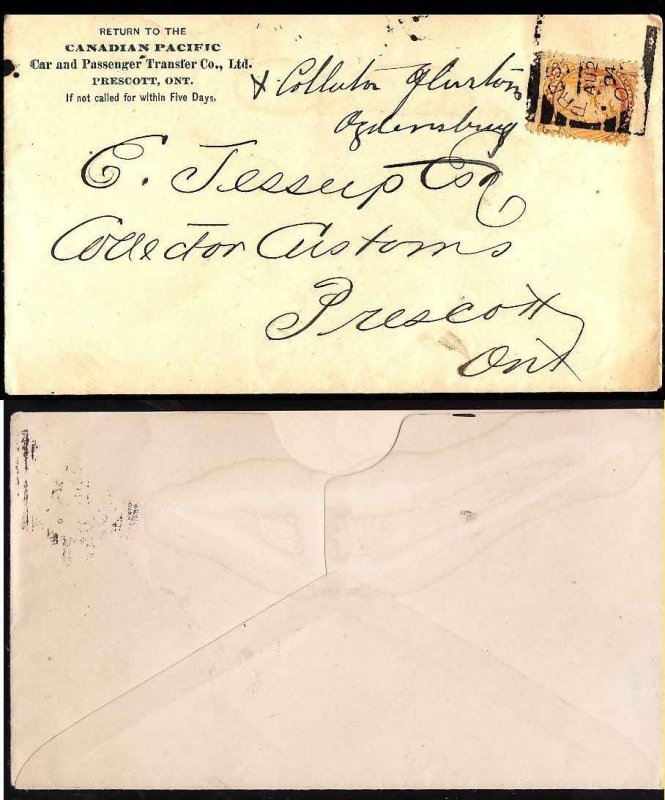 RETURN TO THE
CANADIAN PACIFIC
Car and Passenger Transfer Co., Ltd.
PRESCOTT, ONT.
If not called for within Five Days.
Ogdensburg
E. Jessup Esq
Collector Customs
Prescott
Ont